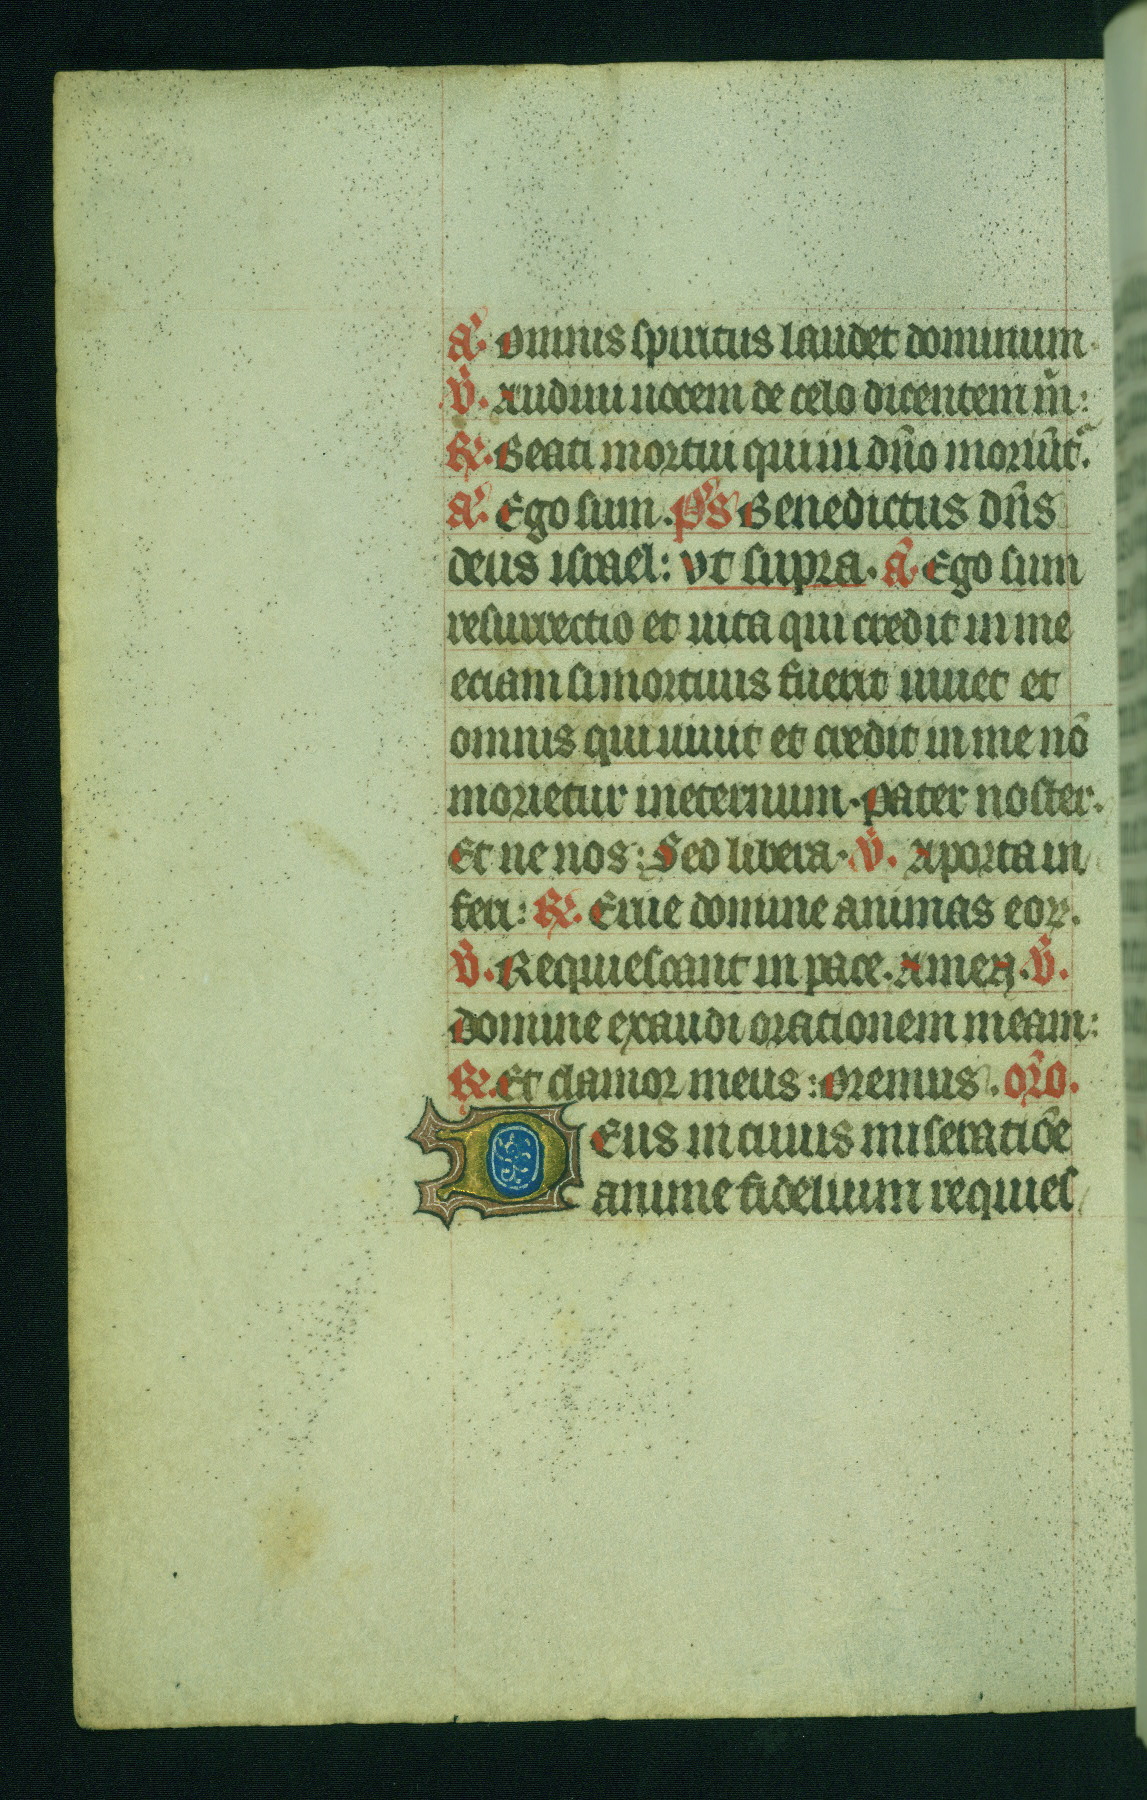 a᷎. Omnis spiritus laudet dominum.
v̄. Audiui uocem de celo dicentem m̄:
℟. Beati mortui qui in dn̄o moriūt᷑.
a᷎. Ego sum. p̄s Benedictus dn̄s
deus israel: vt supra. ā. Ego sum
resurrectio et uita qui credit in me
eciam si mortuus fuerit uiuet et
omnis qui uiuit et credit in me nō
morietur ineternum. Pater noster.
Et ne nos: Sed libera. v̄. A porta in/
feri: ℟. Erue domine animas eoꝝ.
v̄. Requiescant in pace. Amen. v̄.
Domine exaudi orationem meam:
℟. Et clamor meus: Oremus. or̄o.
DEus in cuius miseratiōe
anime fidelium requies/